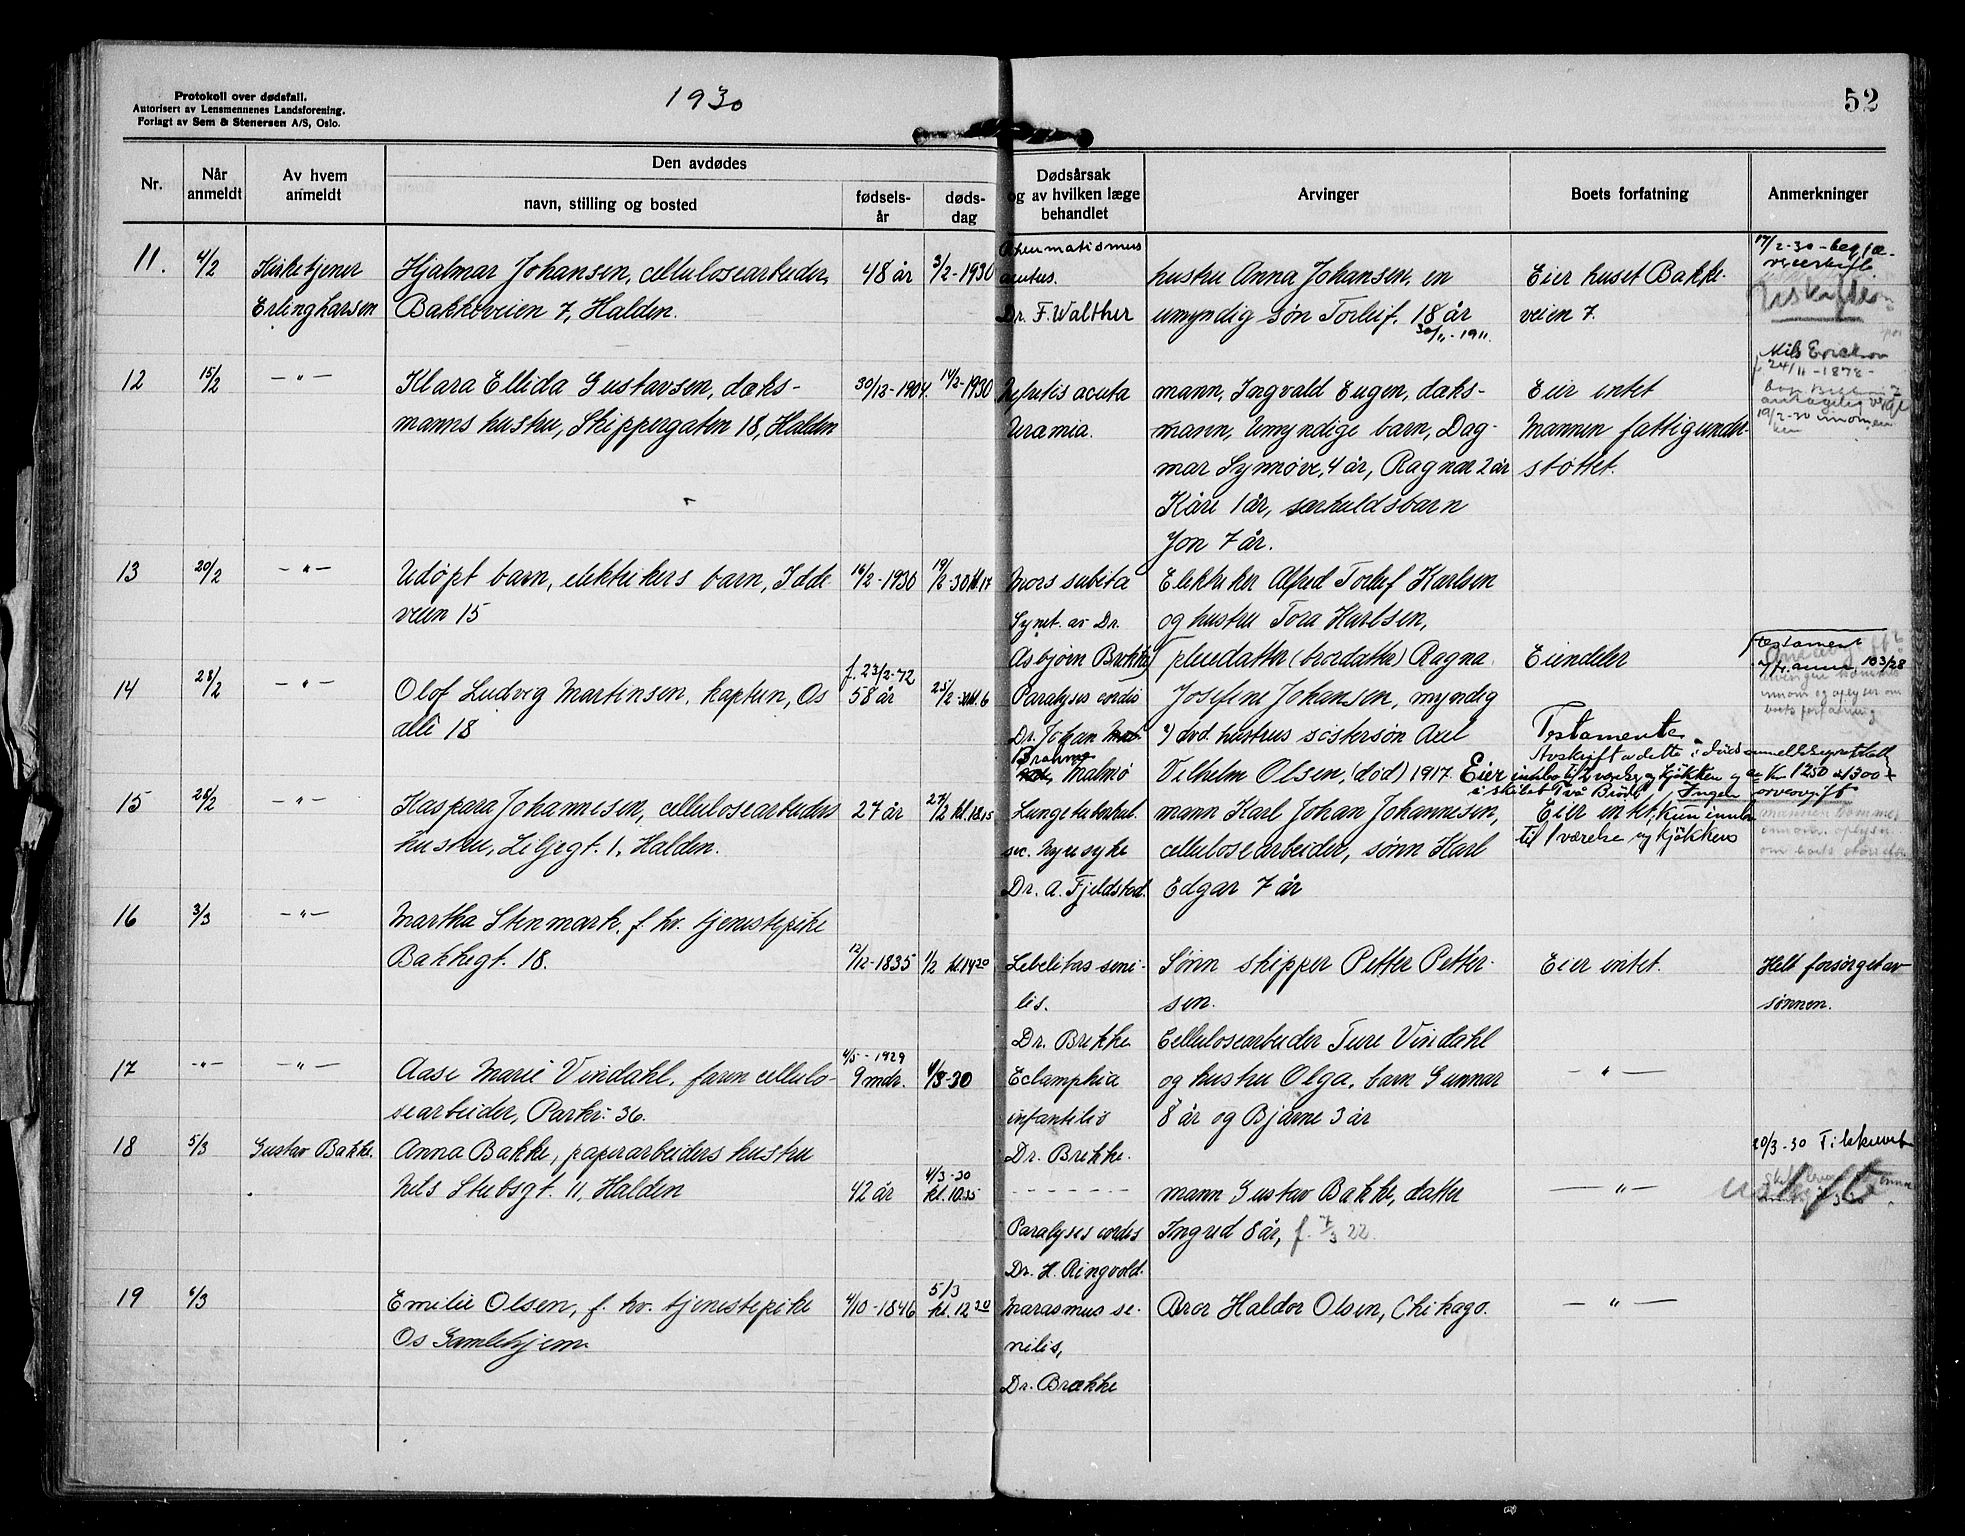 Protokoll over dødsfall.
Autorisert av Lensmennenes Landsforening.
Forlagt av Sem & Stenersen A/S, Oslo.
1930
52
Nr.
Når anmeldt
Av hvem anmeldt
Den avdødes
navn, stilling og bosted
fødselsår
dødsdag
Dødsårsak
og av hvilken læge
behandlet
Arvinger
Boets forfatning
Anmerkninger
11. 4/2 Kirketjener Hjalmar Johansen, cellulosearbeider, 48 år 3/2-1930
Erling Larsen Bakkeveien 7, Halden.
Rheumatismus
acutus.
Dr. F. Walther
hustru Anna Johansen, en
umyndig søn Torleif, 18 år
30/11-1911.
Eier huset Bakke-
veien 7.
17/2-30 - beg. 
Uskifte
12 15/2 -"- Klara Ellida Gustavsen, daks- 30/12-1904. 14/2-1930
manns hustru, Skippergaten 18, Halden
Nefritis acuta
Uramia.
mann, Ingvald Eugen, daks-
mann, Umyndige barn, Dag-
mar Synnøve, 4 år, Ragnar 2 år
Kåre 1 år, særkuldsbarn
Jon 7 år.
Eier intet
Mannen fattigunder-
støttet.
24/11-1878-
19/2-30
13 20/2 -"- Udøpt barn, elektrikers barn, Idde- 16/2-1930 19/2-30 kl. 17
veien 15
Mors subita
Synet. av Dr.
Asbjørn Brekke
Elektriker Alfred Torleif Karlsen
og hustru Tora Karlsen,
14 28/2 -"- Olof Ludvig Martinsen, kaptein, Os f. 23/2-72
58 år 25/2- kl. 6
allé 18
Paralyses cordis
Dr. Johan
Brahme
Malmø
pleiedatter (brordatter) Ragna
Josefine Johansen, myndig
avd. hustrus søstersøn Axel
Vilhelm Olsen, (død) 1917.
Eiendeler
Testamente
Eier innbo til 2 værelser og kjøkken
Kr 1250 1300
Ingen arveavgift
Testament
103/28
15 28/2 -"- Kaspara Johannesen, cellulosearbeiders 27 år 27/2 kl. 18.15
hustru, Liljegt. 1, Halden.
Lungetuberkul.
sec. Nyresyke
Dr. A. Fjeldstad.
mann Karl Johan Johannesen,
cellulosearbeider, sønn Karl
Edgar 7 år
Eier intet, kun innbo
til 1 værelse og kjøkken
16 3/3 -"- Martha Stenmark, f. hv. tjenestepike
Bakkegt. 18. 12/12-1835 1/2 kl. 14 20
Lebelitas seni-
lis.
Dr. Brekke
Sønn skipper Petter Petter-
sen.
Eier intet.
Helt forsørget av
sønnen.
17 -"- -"- Aase Marie Vindahl, faren cellulo- 4/5-1929
9 mdr. 1/3-30
searbeider, Parkv. 36.
Eclamphia
infantilis
Dr. Brekke.
Cellulosearbeider Ture Vindahl
og hustru Olga, barn Gunnar
8 år og Bjarne 3 år
-"-
18 5/3 Gustav Bakke. Anna Bakke, papirarbeiders hustru
Nils Stubsgt. 11, Halden 42 år 4/3-30
kl. 10.35
Paralyses cordis
Dr. H. Ringvold.
mann Gustav Bakke, datter
Ingrid 8 år, f. 7/3 22.
-"-
20/3-30
uskifte
19 6/3 Emilie Olsen, f. hv. tjenestepike 4/10-1846 5/3
kl. 12 20
Os Gamlehjem.
Marasmus se-
nilis,
Dr. Brekke
Bror Haldor Olsen, Chikago.
-"-